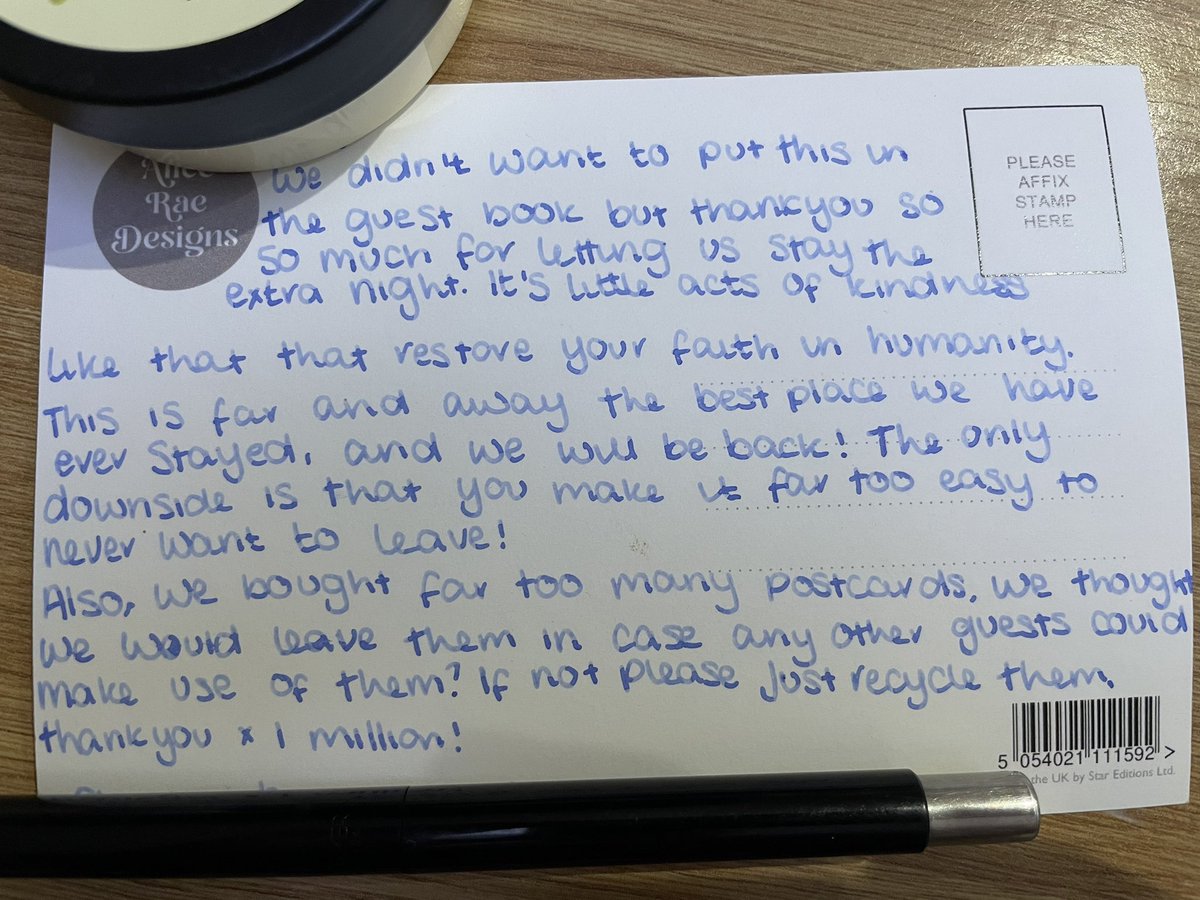 Alice
Rae
Designs
PLEASE
AFFIX
STAMP
HERE
We didn't want to put this in
the guest book but thankyou so
so much for letting us stay the
extra night. It's little acts of kindness
like that that restore your faith in humanity.
This is far and away the best place we have
ever stayed, and we will be back! The only
downside is that you make it far too easy to
never want to leave!
Also, we bought far too many postcards, we thought
we would leave them in case any other guests could
make use of them? If not please just recycle them.
thankyou x 1 million!
5 054021 111592 >
the UK by Star Editions Ltd.